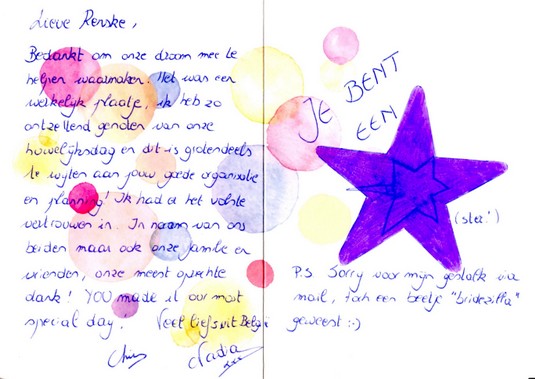 Lieve Renske,
Bedankt om onze droom mee te
helpen waarmaken. Het was een
werkelijk plaatje, ik heb zo
ontzettend genoten van onze
huwelijksdag en dit is grotendeels
te wijten aan jouw goede organisatie
en planning! Ik had er het volste
vertrouwen in. In naam van ons
beiden maar ook onze familie en
vrienden, onze meest oprechte
dank! YOU made it our most
special day. Veel liefs uit België
Nadia
xxx
JE BENT
EEN
(ster!)
P.S Sorry voor mijn gestalk via
mail, toch een beetje "bridezilla"
geweest :-)